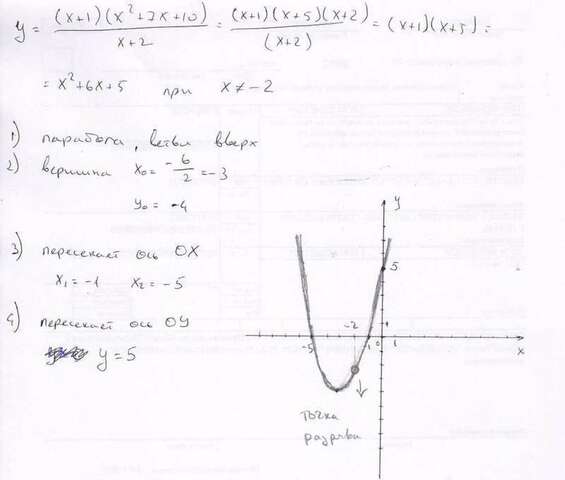 y = (x+1)(x²+7x+10) / x+2 = (x+1)(x+5)(x+2) / (x+2) = (x+1)(x+5) =
= x²+6x+5 при x ≠ -2
1) парабола, ветви вверх
2) вершина x₀ = -6/2 = -3
y₀ = -4
3) пересекает ось OX
x₁ = -1 x₂ = -5
4) пересекает ось OY
y = 5
y
5
-2
-5 -1 0 1 x
точка
разрыва